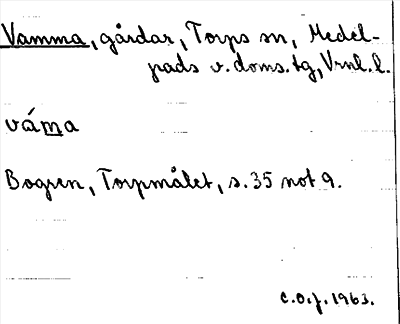 Vamma, gårdar, Torps sn, Medel-
pads v. doms. tg, Vrnl. l.
váma
Bogren, Torpmålet, s. 35 not 9.
c.o.j. 1963.